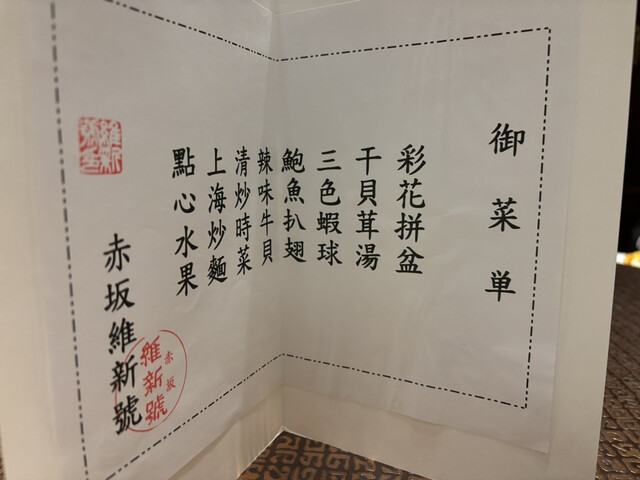 御菜単
彩花拼盆
干貝茸湯
三色蝦球
鮑魚扒翅
辣味牛貝
清炒時菜
上海炒麵
點心水果
維新號
赤坂維新號
赤坂
維新號